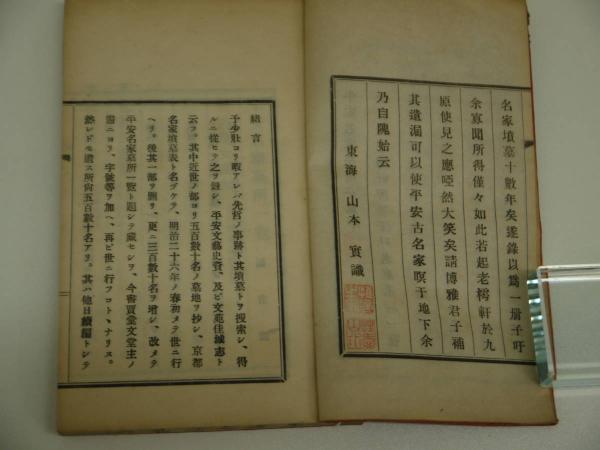 名家墳墓十數年矣遂錄以爲一册子吁
余寡聞所得僅々如此若起老樗軒於九
原使見之應啞然大笑矣請博雅君子補
其遺漏可以使平安古名家瞑于地下余
乃自隗始云
東海 山本 實識
緒言
予少壯ヨリ暇アレバ先哲ノ事跡ト其墳墓トヲ搜索シ、得
ルニ從ヒテ之ヲ錄シ、平安文藝史資、及ビ文苑佳城志ト
云フ。其中近世ノ部ヨリ五百數十名ノ墓地ヲ抄シ、京都
名家墳墓表ト名ヅケテ、明治二十六年ノ春初メテ世ニ行
ヘリ。後其一部ヲ刪リ、更ニ三百數十名ヲ增シ、改メテ
平安名家墓所一覽ト題シテ藏セシヲ、今書賈文堂主ノ
需ニヨリ、字號等ヲ加ヘ、再ビ世ニ行フコトヽナリヌ。
然レドモ遺ス所尙五百數十名アリ。其ハ他日續編トシテ